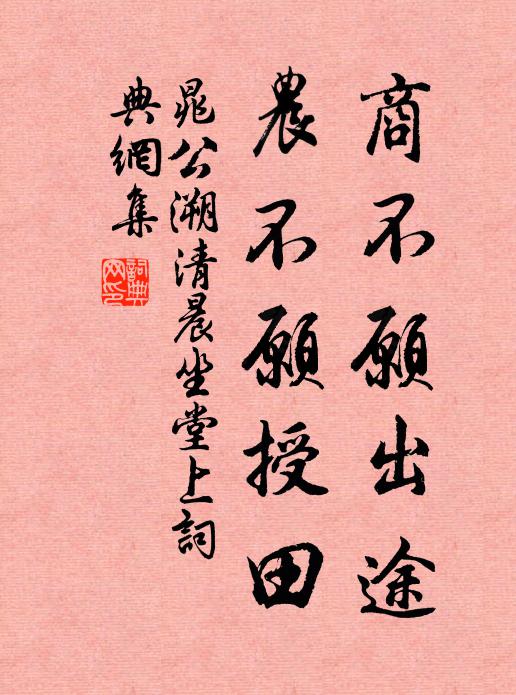 商不願出途
農不願授田
晁公溯清晨坐堂上詞
典網集
詞典
网印